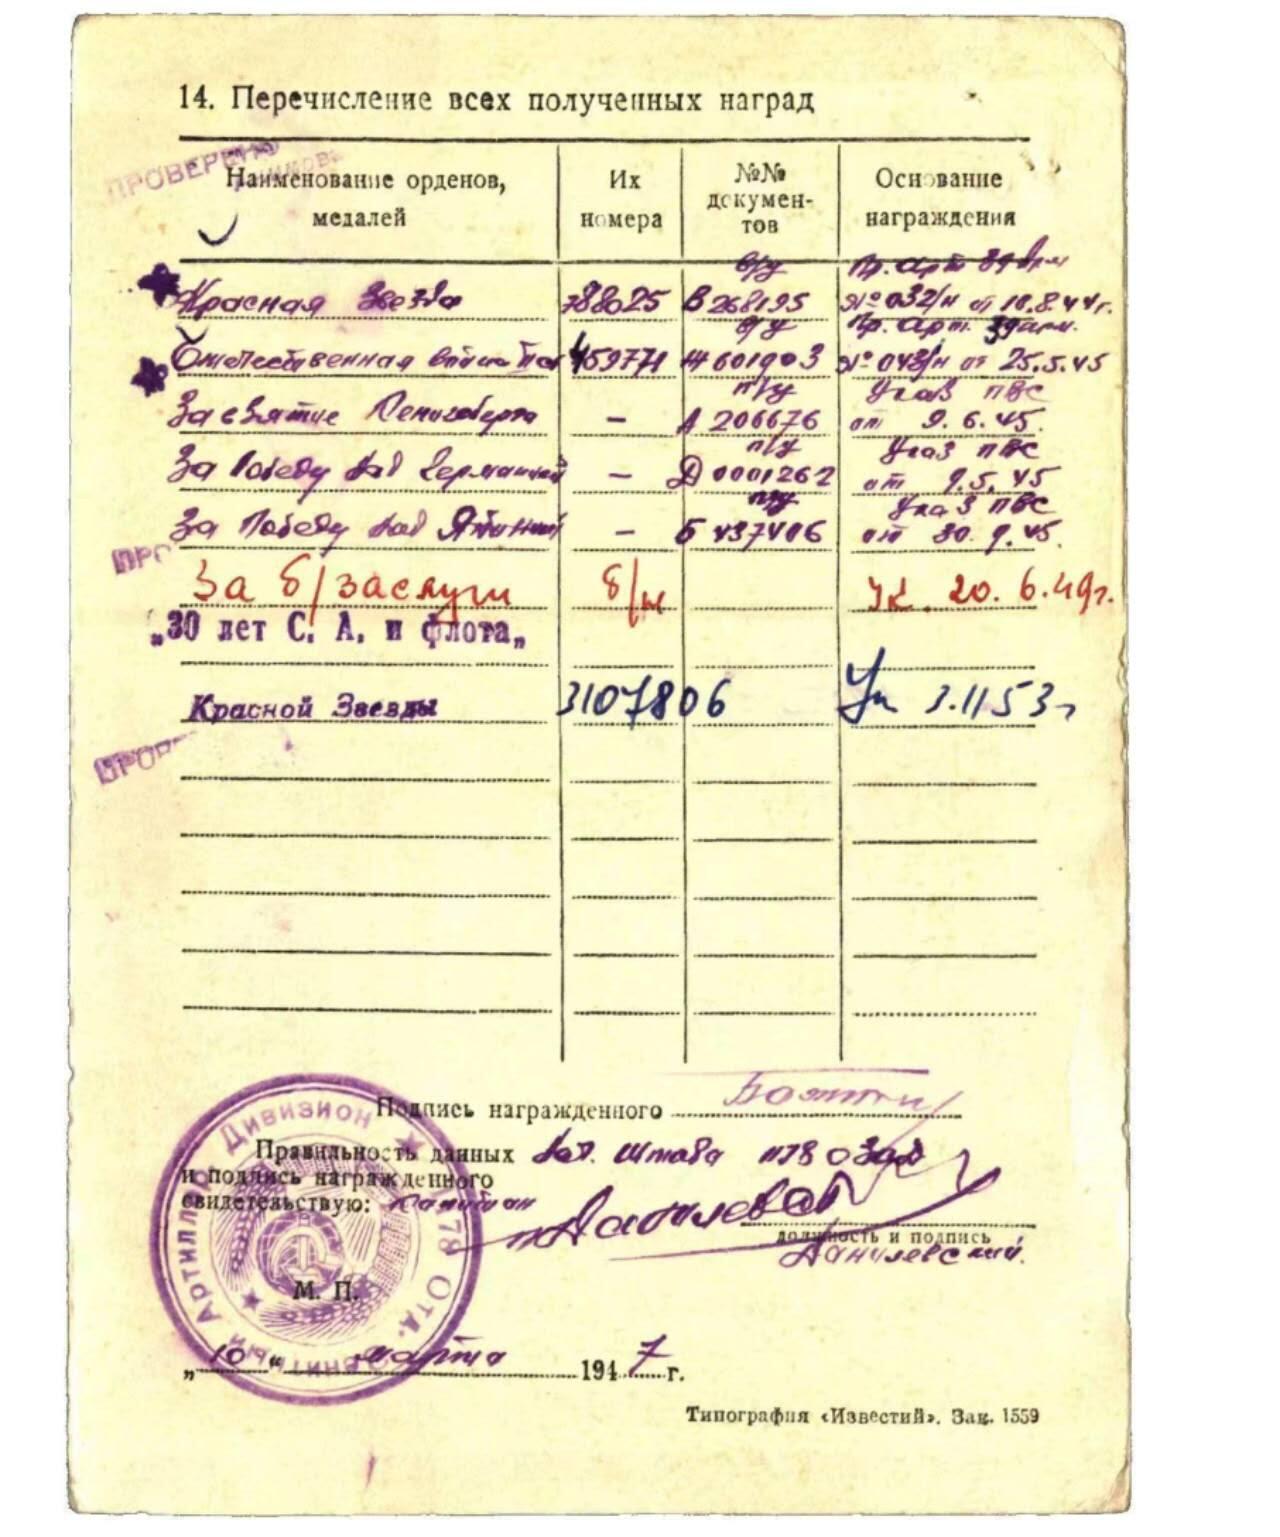 14. Перечисление всех полученных наград
ПРОВЕРЕНО
Наименование орденов, медалей
Их номера
№№ докумен-тов
Основание награждения
в/у Пр. Арт 39 арм
Красная Звезда 788025 В 268195 № 032/н от 18.8.44г.
в/у Пр. Арт. 39 арм.
Отечественная война 459771 Ж 601903 № 043/н от 25.5.45
п/у Указ ПВС
За взятие Кенигсберга – А 206676 от 9.6.45.
п/у Указ ПВС
За Победу над Германией – Д 0001262 от 9.5.45
п/у Указ ПВС
За Победу над Японией – Б 437406 от 30.9.45.
ПРО
За б/заслуги б/н Ук. 20.6.49г.
„30 лет С. А. и флота„
Красной Звезды 3107806 Ук 3.11 53г
ПРОВЕ
Подпись награжденного
Правильность данных Нач. Штаба 1178 ОЗАД
и подпись награжденного
свидетельствую: Капитан Данилевский
должность и подпись
Данилевский.
Зенитный Артиллер Дивизион ★ 1178 Отд.
М. П.
„10" марта 1947 г.
Типография «Известий». Зак. 1559